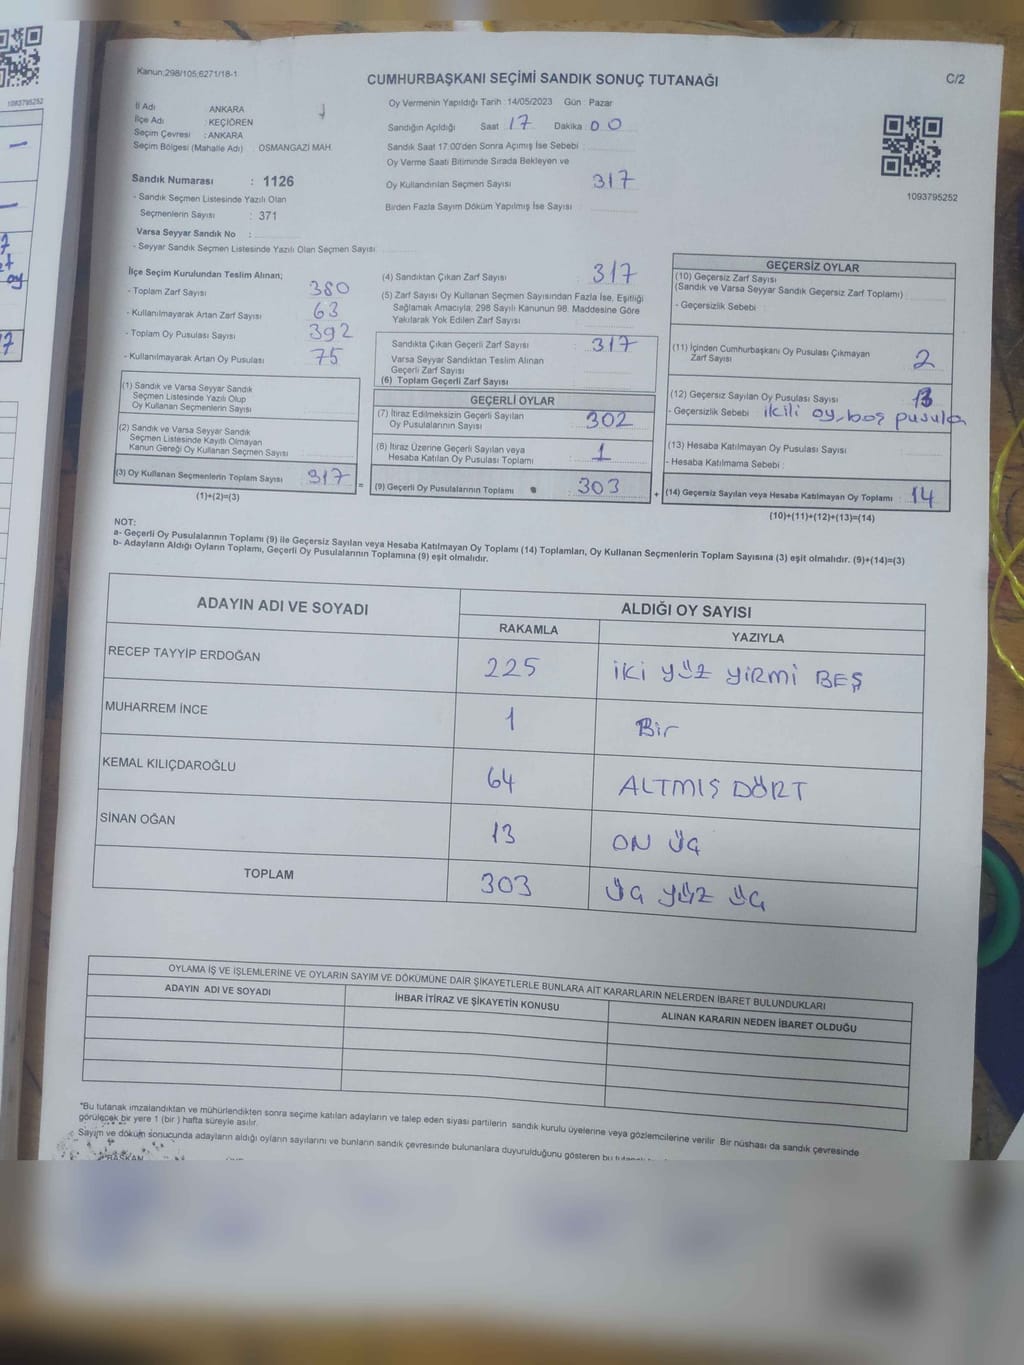 Kanun;298/105;6271/18-1
CUMHURBAŞKANI SEÇİMİ SANDIK SONUÇ TUTANAĞI
C/2
1093795252
İl Adı ANKARA
İlçe Adı : KEÇİÖREN
Seçim Çevresi : ANKARA
Seçim Bölgesi (Mahalle Adı) : OSMANGAZİ MAH.
Sandık Numarası : 1126
- Sandık Seçmen Listesinde Yazılı Olan
Seçmenlerin Sayısı : 371
Varsa Seyyar Sandık No :
- Seyyar Sandık Seçmen Listesinde Yazılı Olan Seçmen Sayısı
Oy Vermenin Yapıldığı Tarih : 14/05/2023 Gün : Pazar
Sandığın Açıldığı Saat : 17 Dakika : 00
Sandık Saat 17:00'den Sonra Açımış İse Sebebi
Oy Verme Saati Bitiminde Sırada Bekleyen ve
Oy Kullandırılan Seçmen Sayısı 317
Birden Fazla Sayım Döküm Yapılmış İse Sayısı
1093795252
İlçe Seçim Kurulundan Teslim Alınan;
- Toplam Zarf Sayısı 380
- Kullanılmayarak Artan Zarf Sayısı 63
- Toplam Oy Pusulası Sayısı 392
- Kullanılmayarak Artan Oy Pusulası 75
(1) Sandık ve Varsa Seyyar Sandık
Seçmen Listesinde Yazılı Olup
Oy Kullanan Seçmenlerin Sayısı
(2) Sandık ve Varsa Seyyar Sandık
Seçmen Listesinde Kayıtlı Olmayan
Kanun Gereği Oy Kullanan Seçmen Sayısı
(3) Oy Kullanan Seçmenlerin Toplam Sayısı 317
(1)+(2)=(3)
(4) Sandıktan Çıkan Zarf Sayısı : 317
(5) Zarf Sayısı Oy Kullanan Seçmen Sayısından Fazla İse, Eşitliği
Sağlamak Amacıyla; 298 Sayılı Kanunun 98. Maddesine Göre
Yakılarak Yok Edilen Zarf Sayısı
Sandıkta Çıkan Geçerli Zarf Sayısı : 317
Varsa Seyyar Sandıktan Teslim Alınan
Geçerli Zarf Sayısı
(6) Toplam Geçerli Zarf Sayısı
GEÇERLİ OYLAR
(7) İtiraz Edilmeksizin Geçerli Sayılan
Oy Pusulalarının Sayısı 302
(8) İtiraz Üzerine Geçerli Sayılan veya
Hesaba Katılan Oy Pusulası Toplamı 1
(9) Geçerli Oy Pusulalarının Toplamı : 303
GEÇERSİZ OYLAR
(10) Geçersiz Zarf Sayısı
(Sandık ve Varsa Seyyar Sandık Geçersiz Zarf Toplamı)
- Geçersizlik Sebebi :
(11) İçinden Cumhurbaşkanı Oy Pusulası Çıkmayan
Zarf Sayısı 2
(12) Geçersiz Sayılan Oy Pusulası Sayısı
- Geçersizlik Sebebi : ikili oy, boş pusula
(13) Hesaba Katılmayan Oy Pusulası Sayısı
- Hesaba Katılmama Sebebi :
(14) Geçersiz Sayılan veya Hesaba Katılmayan Oy Toplamı : 14
(10)+(11)+(12)+(13)=(14)
NOT:
a- Geçerli Oy Pusulalarının Toplamı (9) ile Geçersiz Sayılan veya Hesaba Katılmayan Oy Toplamı (14) Toplamları, Oy Kullanan Seçmenlerin Toplam Sayısına (3) eşit olmalıdır. (9)+(14)=(3)
b- Adayların Aldığı Oyların Toplamı, Geçerli Oy Pusulalarının Toplamına (9) eşit olmalıdır.
ADAYIN ADI VE SOYADI ALDIĞI OY SAYISI
RAKAMLA YAZIYLA
RECEP TAYYİP ERDOĞAN 225 İKİ YÜZ YİRMİ BEŞ
MUHARREM İNCE 1 Bir
KEMAL KILIÇDAROĞLU 64 ALTMIŞ DÖRT
SİNAN OĞAN 13 ON ÜÇ
TOPLAM 303 ÜÇ YÜZ ÜÇ
OYLAMA İŞ VE İŞLEMLERİNE VE OYLARIN SAYIM VE DÖKÜMÜNE DAİR ŞİKAYETLERLE BUNLARA AİT KARARLARIN NELERDEN İBARET BULUNDUKLARI
ADAYIN ADI VE SOYADI İHBAR İTİRAZ VE ŞİKAYETİN KONUSU ALINAN KARARIN NEDEN İBARET OLDUĞU
*Bu tutanak imzalandıktan ve mühürlendikten sonra seçime katılan adayların ve talep eden siyasi partilerin sandık kurulu üyelerine veya gözlemcilerine verilir Bir nüshası da sandık çevresinde
görülecek bir yere 1 (bir ) hafta süreyle asılır.
Sayım ve döküm sonucunda adayların aldığı oyların sayılarını ve bunların sandık çevresinde bulunanlara duyurulduğunu gösteren bu
BAŞKAN